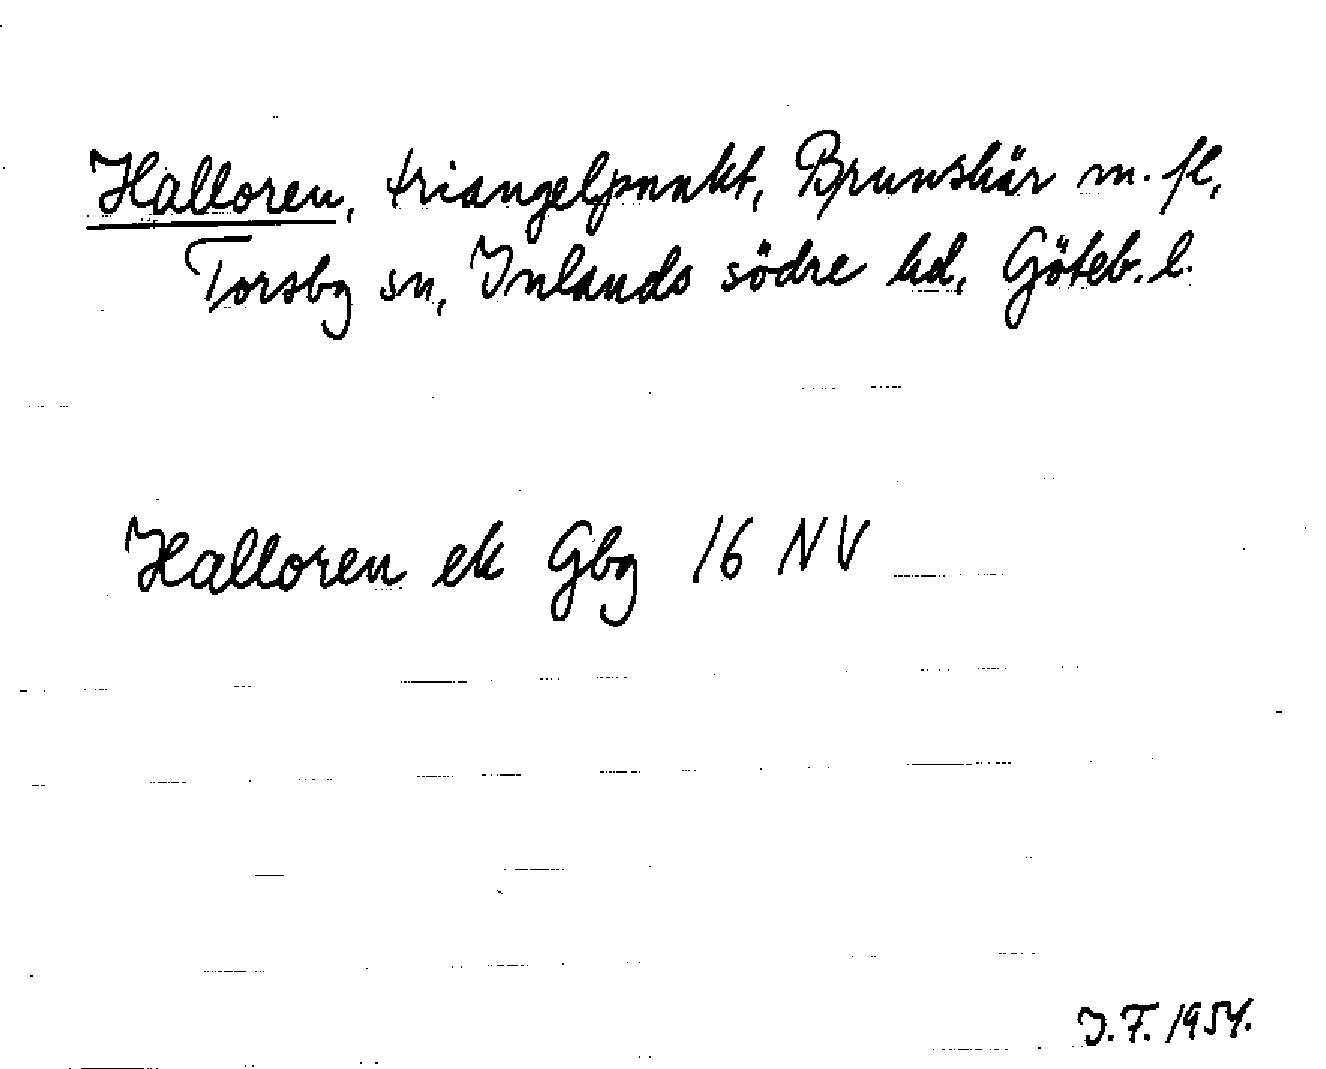 Halloren, triangelpunkt, Brunskär m. fl,
Torsby sn, Inlands södre hd, Göteb. l.
Halloren ek Gbg 16 NV
I. F. 1954.